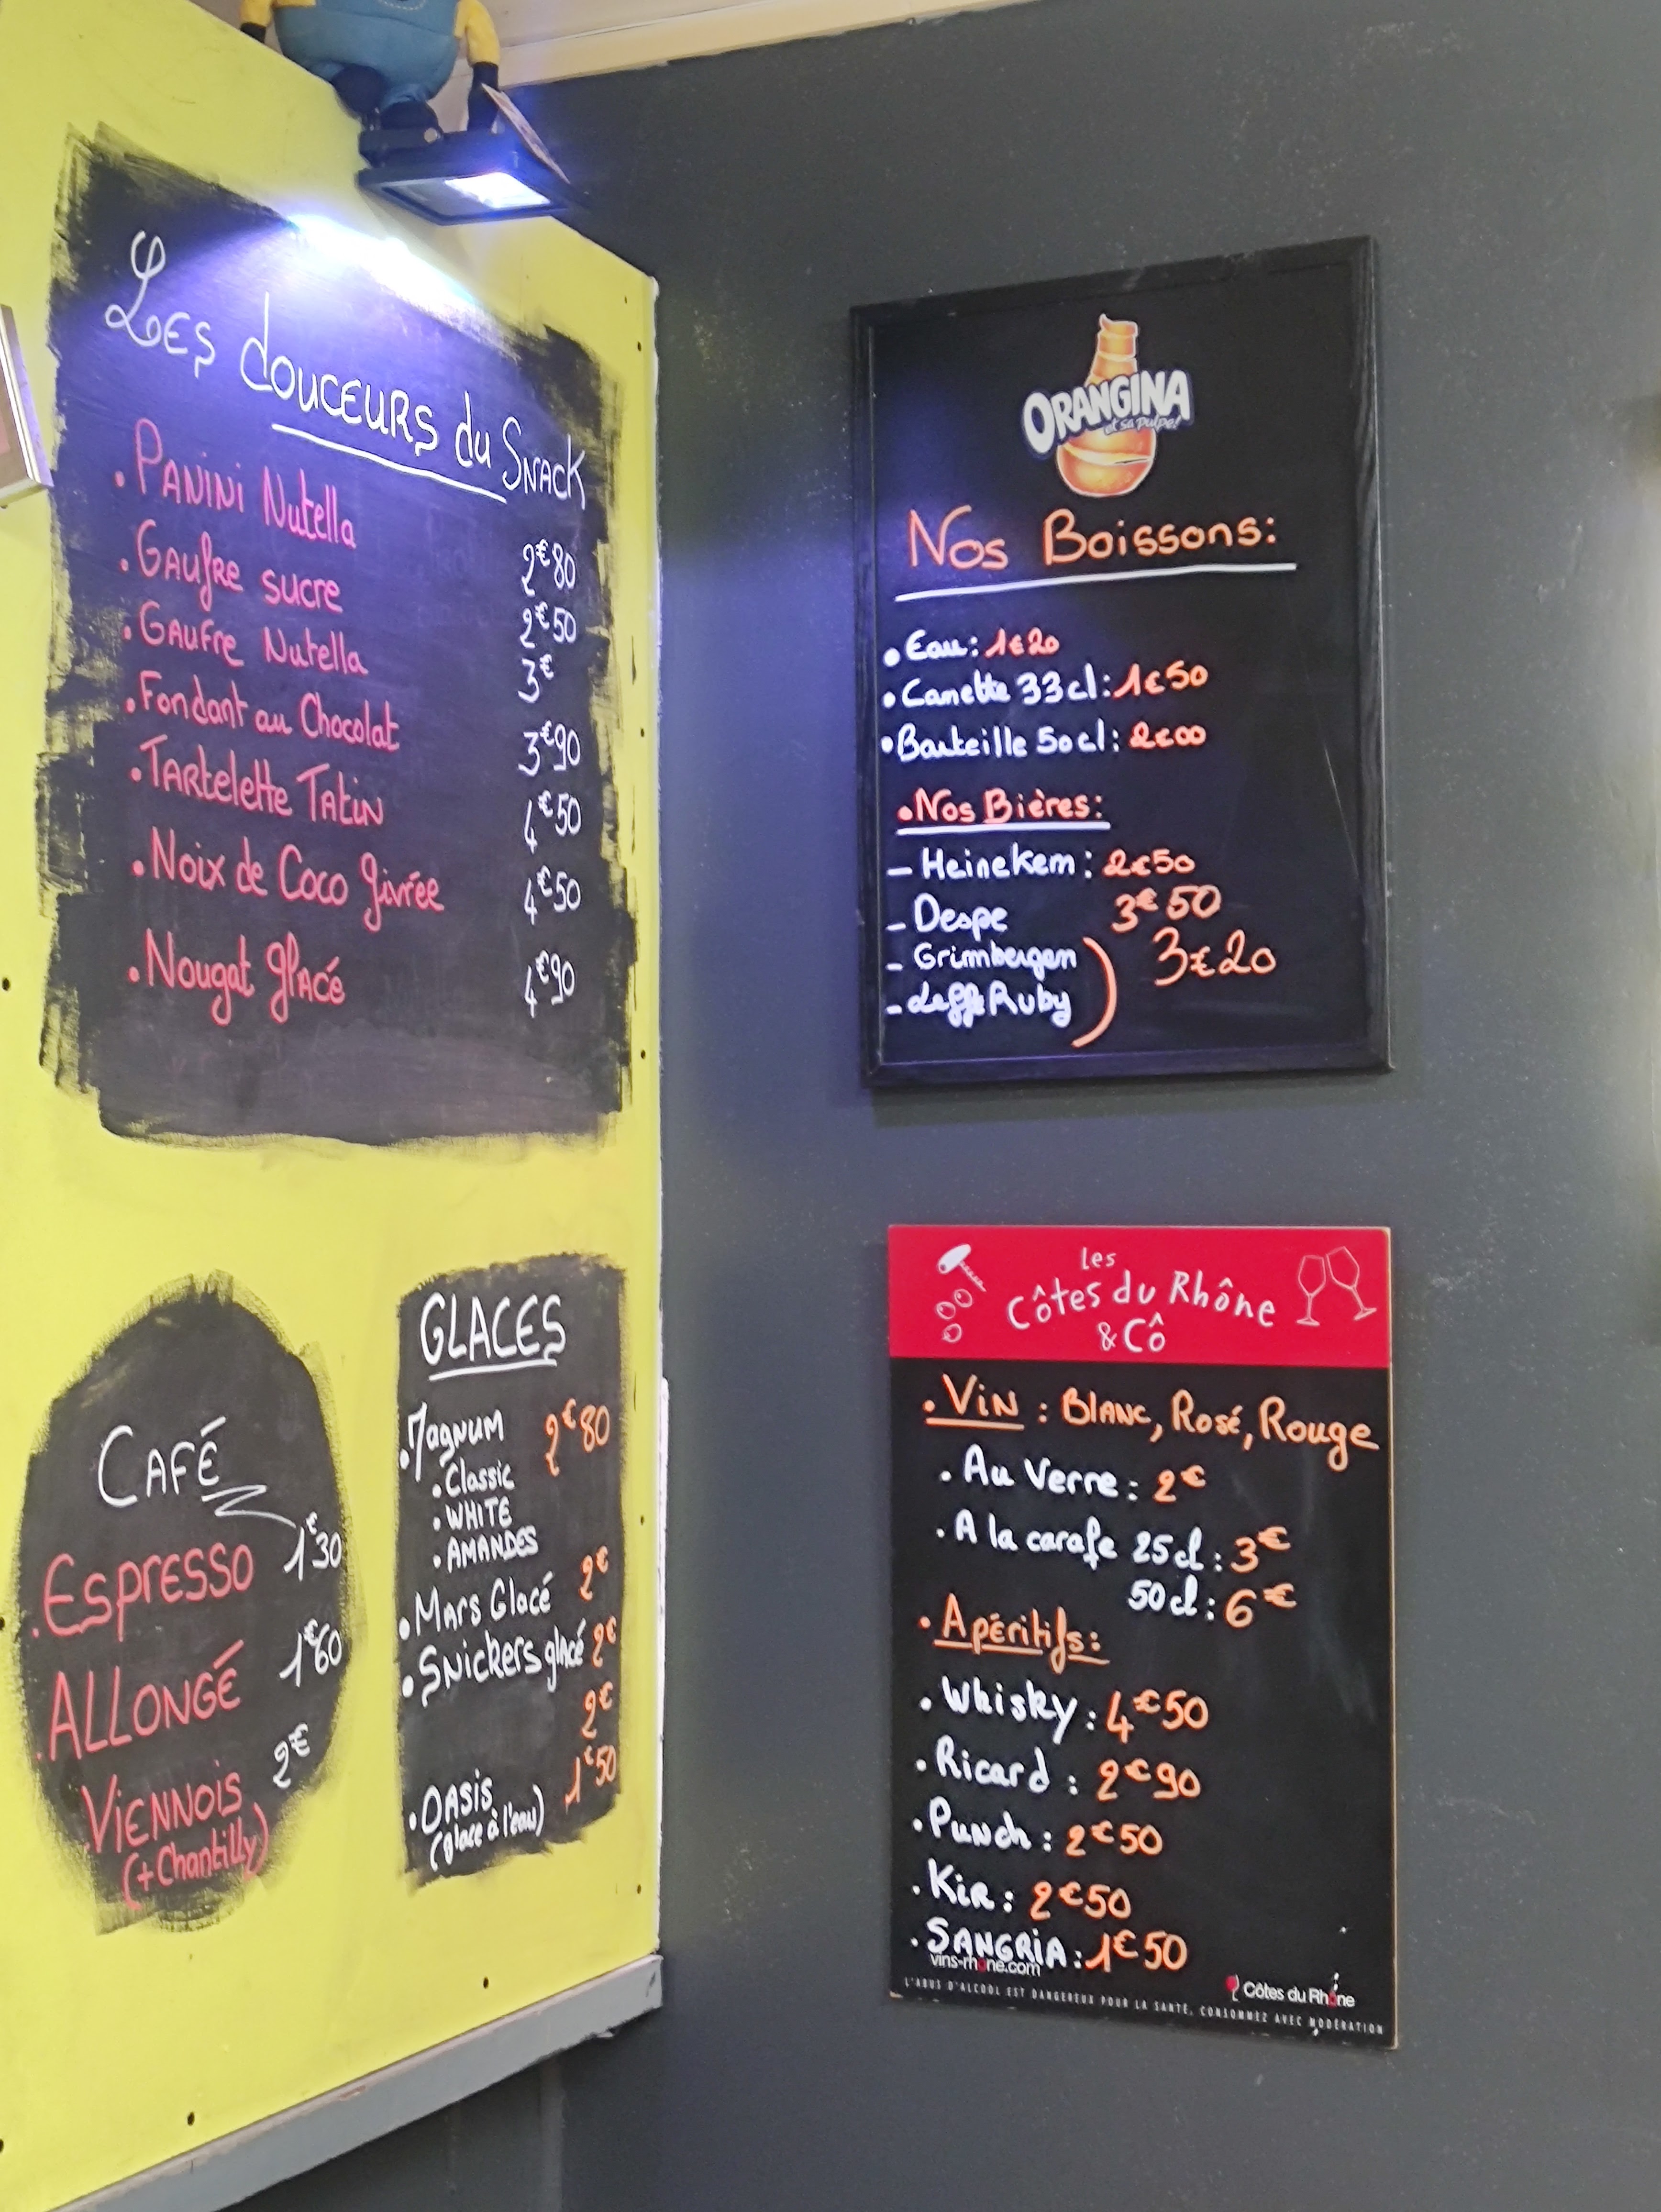 Les douceurs du Snack
. Panini Nutella 2€80
. Gaufre sucre 2€50
. Gaufre Nutella 3€
. Fondant au Chocolat 3€90
. Tartelette Tatin 4€50
. Noix de Coco givrée 4€50
. Nougat glacé 4€90
CAFÉ
. Espresso 1€30
. ALLONGÉ 1€60
. Viennois 2€
(+ Chantilly)
GLACES
• Magnum 2€80
• Classic
• WHITE
• AMANDES
• Mars Glacé 2€
• Snickers glacé 2€
2€
• OASIS 1€50
(glace à l'eau)
ORANGINA
et sa pulpe!
Nos Boissons:
• Eau: 1€20
• Canette 33cl: 1€50
• Bouteille 50cl: 2€00
• Nos Bières:
– Heineken: 2€50
– Despe 3€50
– Grimbergen
3€20
– Leffe Ruby
Les
Côtes du Rhône
& Cô
. Vin : Blanc, Rosé, Rouge
. Au Verre : 2€
. A la carafe 25cl : 3€
50cl : 6€
. Apéritifs:
. Whisky : 4€50
. Ricard : 2€90
. Punch : 2€50
. Kir : 2€50
. SANGRIA : 1€50
vins-rhone.com
Côtes du Rhône
L'ABUS D'ALCOOL EST DANGEREUX POUR LA SANTÉ, CONSOMMEZ AVEC MODÉRATION